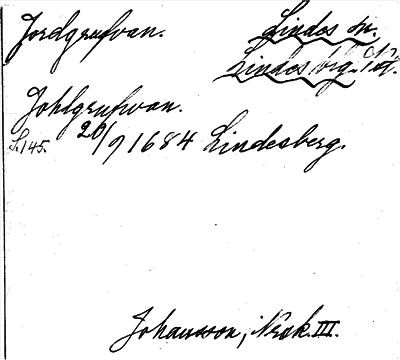 Jordgrufvan.
Lindes sn.
Lindesbrg.
Johlgrufwan.
S.145. 20/9 1684 Lindesberg.
Johansson, Noak. III.